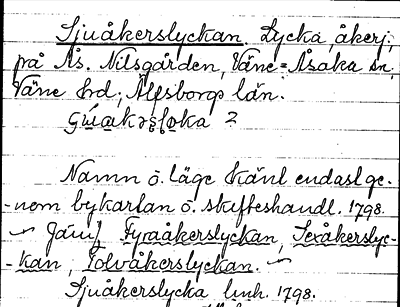 Sjuåkerslyckan. Lycka, åkerj;
på Ås. Nilsgården, Väne-Åsaka sn,
Väne hd; Älfsborgs län.
2
Namn o. läge känt endast ge-
-nom bykartan o. skifteshandl. 1798.
Jämf Fyraåkerslyckan, Sexåkerslyc-
-kan, Tolvåkerslyckan.
Sjuåkerslycka lmh. 1798.